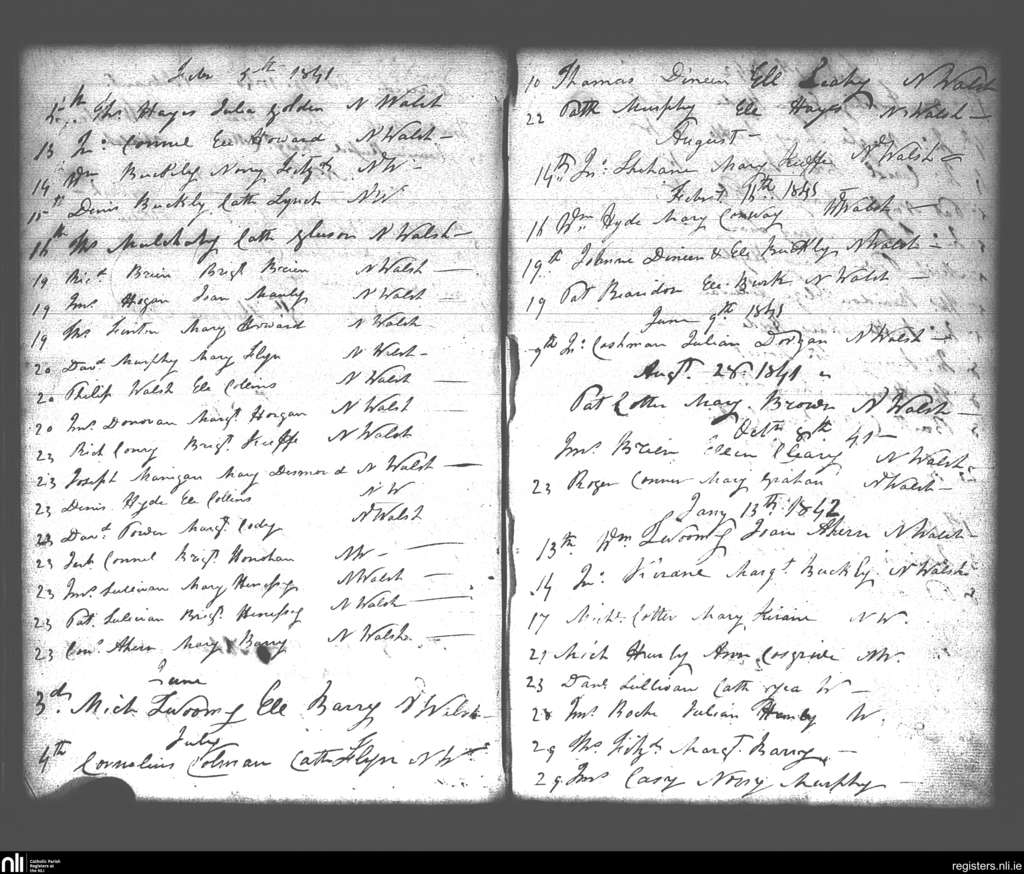 Feb 5th 1841
5th Ths Hayes Julia Golden N Walsh
13 Jno. Connul Ele Howard N Walsh
14 Wm Buckley Nory Fitzs. NW
15th Denis Buckly Cath Lynch NW
16th Ths Mulchahy Cath Gleeson N Walsh
19 Ricd Brien Brigt Breien N Walsh
19 Jms. Hogan Joan Manly N Walsh
19 Ths Mary Howard N Walsh
20 Davd Murphy Mary Flyn N Walsh
20 Philip Walsh Ele Collins N Walsh
20 Jms. Donovan Margt. Horgan N Walsh
23 Rich Conry Brigt. Keeffe N Walsh
23 Joseph Manigan Mary Desmond N Walsh
23 Denis Hyde Ele Collins N W
23 Davd. Power Margt. Cody N Walsh
23 Connel Brigt. Honohan NW
23 Jms. Sullivan Mary Henessy N Walsh
23 Pat. Sulivan Brigt. Henessy N Walsh
23 Cors. Ahern Mary Barry N Walsh
June
3d. Mich Twoomy Ele Barry N Walsh
July
4th Cornelius Colman Cath Flyn N W
10 Thomas Dineen Ell Leahy N Walsh
22 Patk Murphy Ele Hayes N. Walsh
August
14th Jno. Shehane Mary Keeffe Nds Walsh
Feb 16th 1841
16 Wm Hyde Mary Conway N Walsh
19th Dineen & Ele Buckly N Walsh
19 Pat Brandon Ele Burk N Walsh
June 9th 1841
9th Jno. Cashman Julian Dorgan N Walsh
Augt. 28. 1841
Pat Cotter Mary Brown N Walsh
Octr. 8th 41
Jms. Brien Cleary N Walsh
23 Roger Connor Mary Grahan N Walsh
Jany 13th. 1842
13th. Wm. Twoomy Joan Ahern N Walsh
14 Jno. Kirane Margt. Buckley N Walsh
17 Michl. Cotter Mary Kirane N W.
21 Mich Hurly Ann Cosgrave NW.
23 Danl Sullivan Cath W
28 Jms. Roche Julian Hanly W.
29 Ths. Fitzs. Margt. Barry
29 Jms Casy Nory Murphy
nli Catholic Parish Registers at the NLI
registers.nli.ie